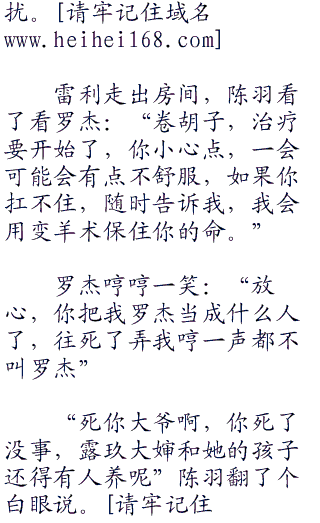 扰。[请牢记住域名
www.heihei168.com]
雷利走出房间，陈羽看
了看罗杰：“卷胡子，治疗
要开始了，你小心点，一会
可能会有点不舒服，如果你
扛不住，随时告诉我，我会
用变羊术保住你的命。”
罗杰哼哼一笑：“放
心，你把我罗杰当成什么人
了，往死了弄我哼一声都不
叫罗杰”
“死你大爷啊，你死了
没事，露玖大婶和她的孩子
还得有人养呢”陈羽翻了个
白眼说。[请牢记住